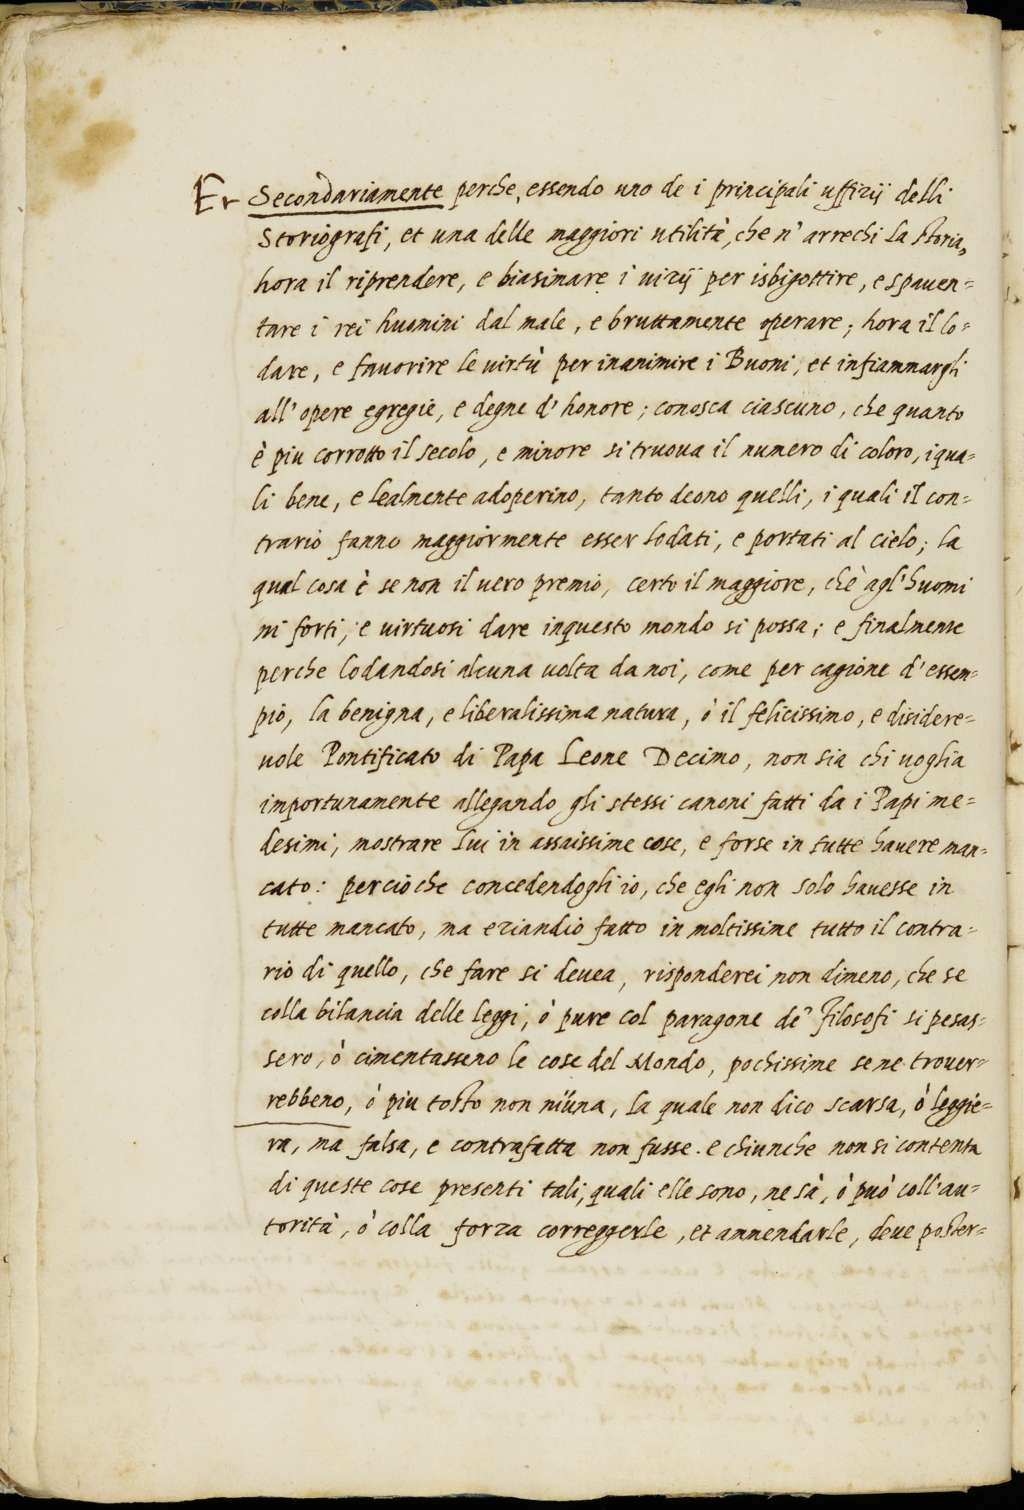 Et Secondariamente perche, essendo uno de i principali uffizij delli
Storiografi, et una delle maggiori utilità, che n' arrechi la storia,
hora il riprendere, e biasimare i vizij per isbigottire, e spauen=
tare i rei huomini dal male, e bruttamente operare; hora il lo=
dare, e fauorire le uirtù per inanimire i Buoni, et infiammargli
all' opere egregie, e degne d' honore; conosca ciascuno, che quanto
è piu corrotto il secolo, e minore si truoua il numero di coloro, i qua=
li bene, e lealmente adoperino, tanto deono quelli, i quali il con=
trario fanno maggiormente esser lodati, e portati al cielo; la
qual cosa è se non il uero premio, certo il maggiore, chè agl' huomi
ni forti, e uirtuosi dare inquesto mondo si possa; e finalmente
perche lodandosi alcuna uolta da noi, come per cagione d' essem=
pio, la benigna, e liberalissima natura, ò il felicissimo, e disidere=
uole Pontificato di Papa Leone Decimo, non sia chi uoglia
importunamente allegando gli stessi canoni fatti da i Papi me=
desimi, mostrare lui in assaissime cose, e forse in tutte hauere man=
cato: percioche concedendogli io, che egli non solo hauesse in
tutte mancato, ma eziandio fatto in moltissime tutto il contra=
rio di quello, che fare si deuea, risponderei non dimeno, che se
colla bilancia delle leggi, ò pure col paragone de' filosofi si pesas=
sero, ò cimentasseno le cose del Mondo, pochissime se ne trouer=
rebbeno, ò piu tosto non niuna, la quale non dico scarsa, ò leggie=
ra, ma falsa, e contrafatta non fusse. e chiunche non si contenta
di queste cose presenti tali, quali elle sono, ne sà, ò può coll' au=
torità, ò colla forza correggerle, et ammendarle, deue poster=